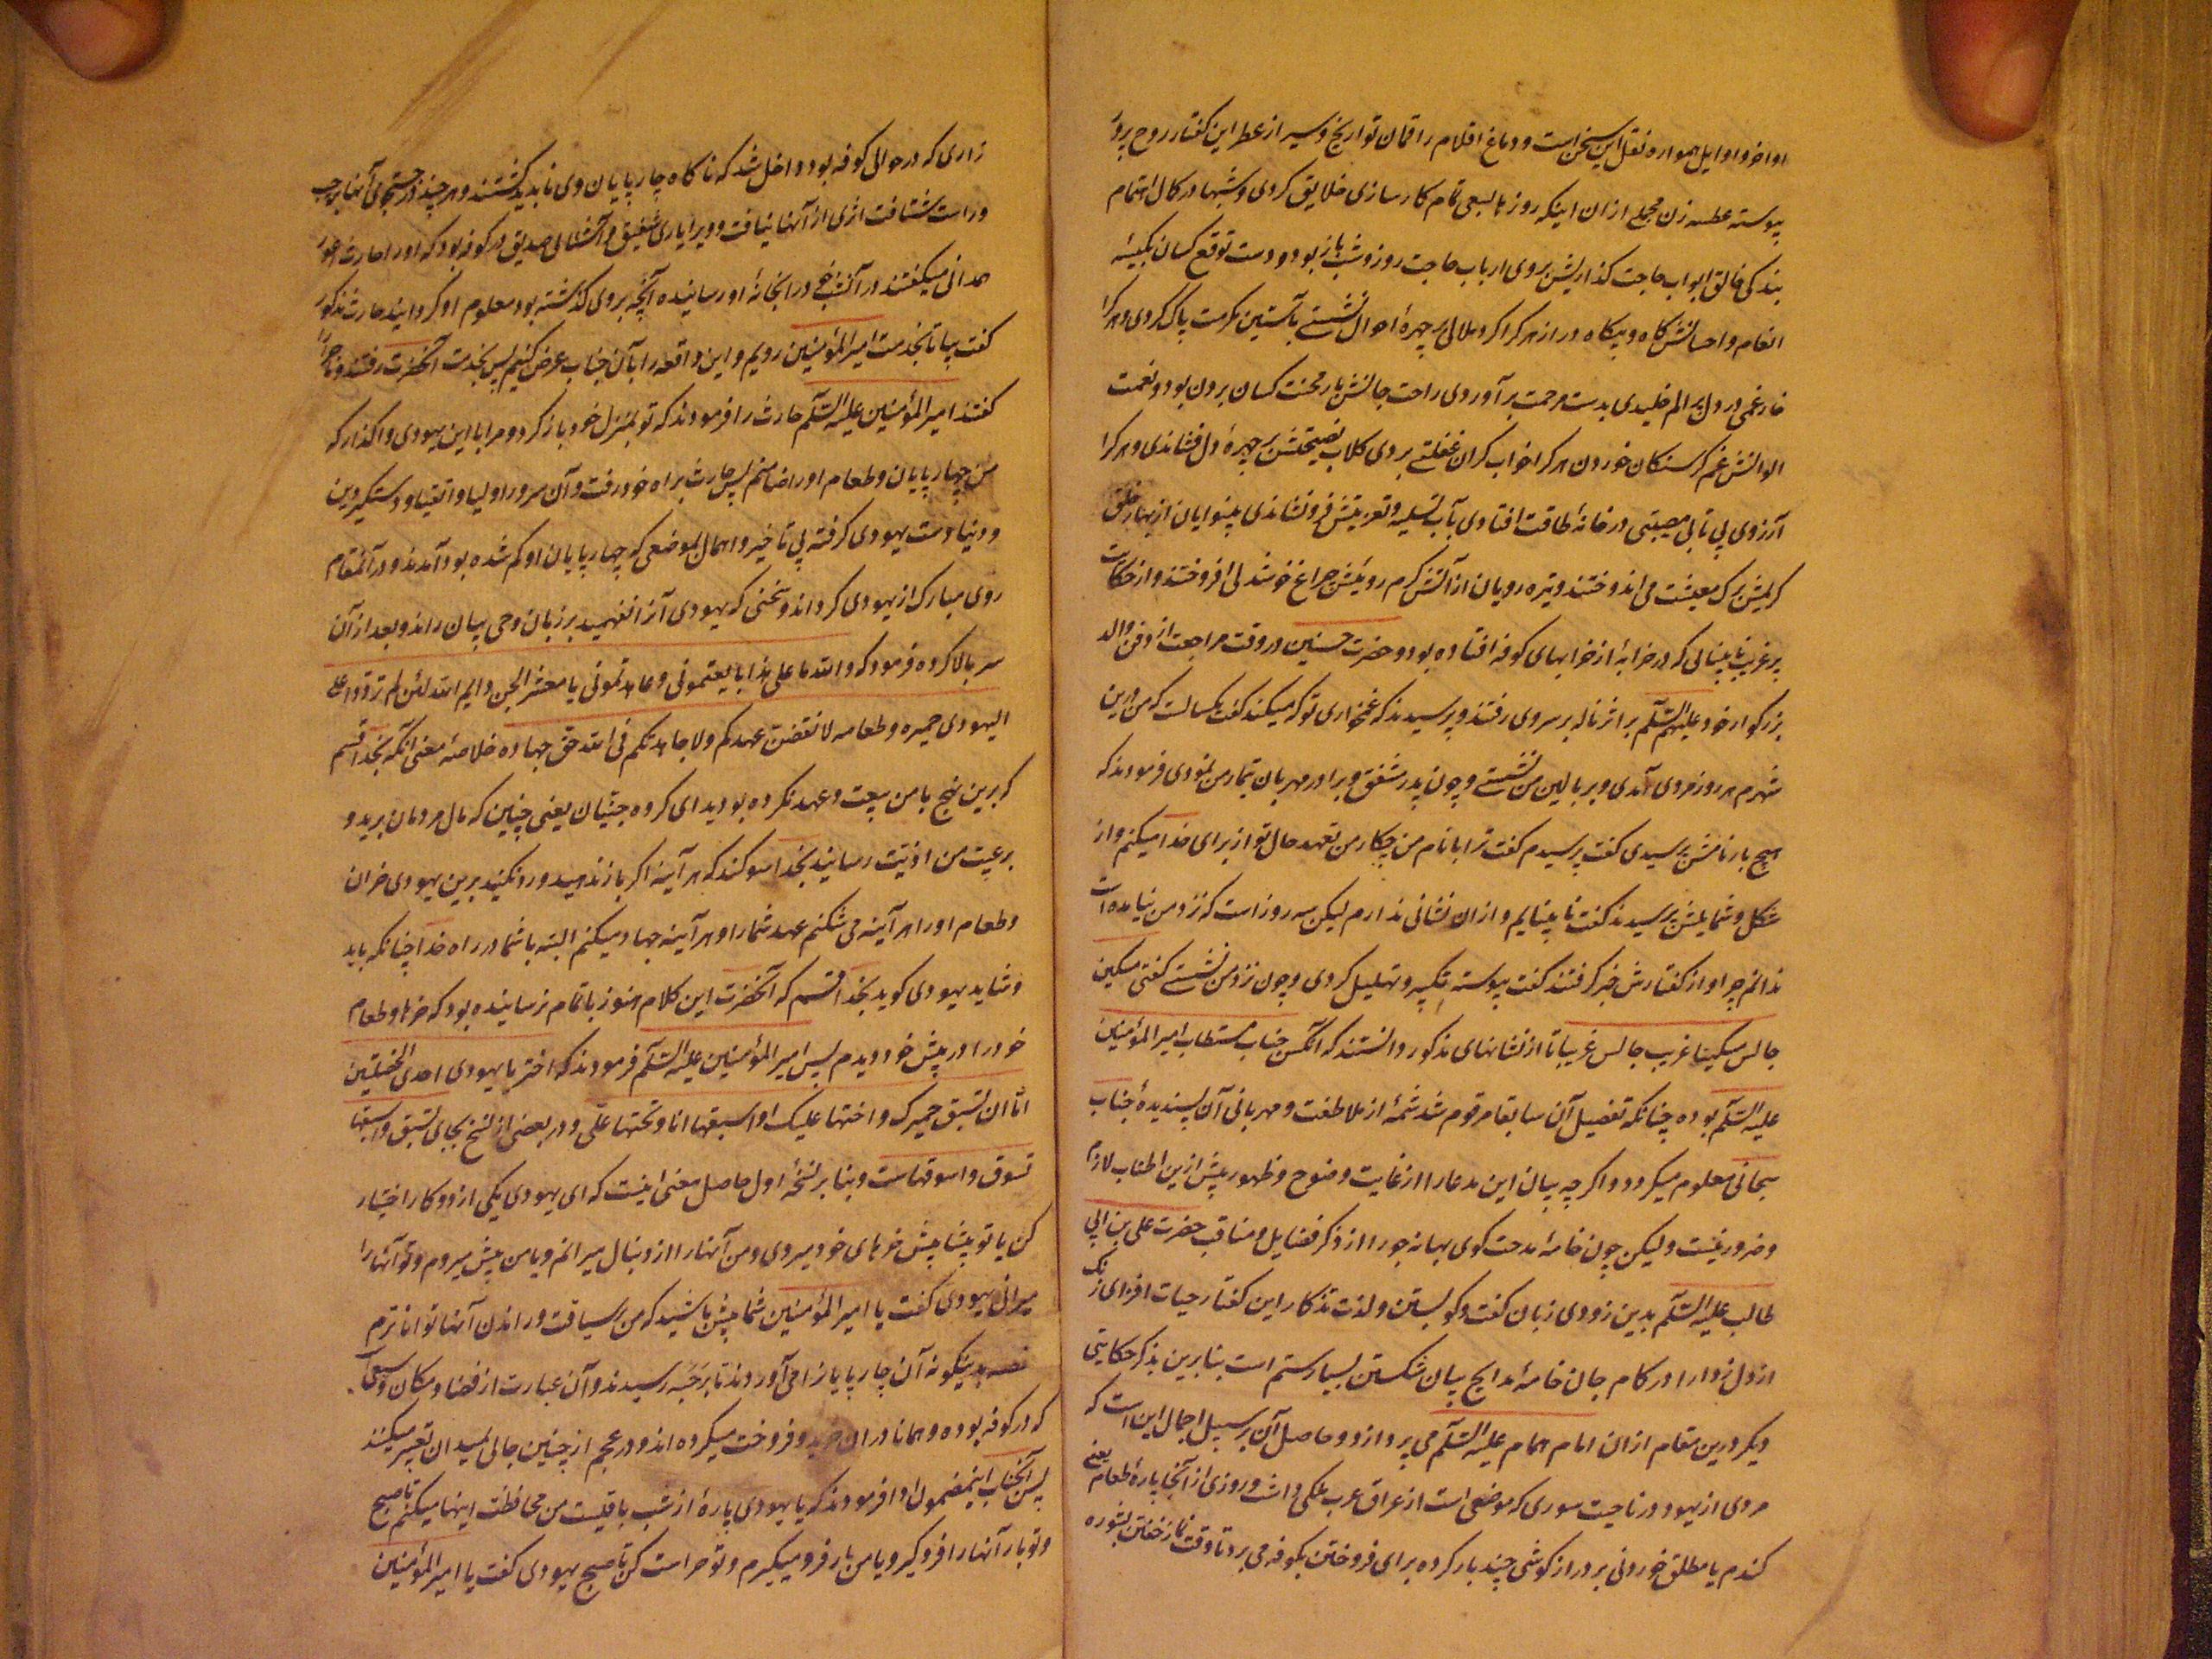 اواخر و اوایل همواره نقل این سخن است و دماغ اقلام راقمان تواریخ و سیر از عطر این کفتار روح پرور
پیوسته عطسه زن مجملی از ان اینکه روزها بسعی تمام کارسازی خلایق کردی و شبها در کمال اهتمام
بندکی خالق ابواب حاجت کذاریش بروی ارباب حاجت روز و شب باز بود و دست توقع کسان بکیسهٔ
انعام و احسانش کاه و بیکاه دراز هرکرا کرد ملالی بر چهرهٔ احوال نشستی بآستین مکرمت پاک کردی و هرکرا
خار غمی در دل پر الم خلیدی بدست مرحمت برآوردی راحت جانش بار محنت کسان بردن بود و نعمت
الوانش غم کرسنکان خوردن هرکرا خواب کران غفلتی بردی کلاب نصیحتش بر چهرهٔ دل فشاندی و هرکرا
آرزوی بی تابی مصیبتی در خانهٔ طاقت افتادی بآب تسلیه و تعزیتش فرو نشاندی بینوایان از بهار خلق
کریمش برک معیشت می اندوختند و تیره رویان از آتش کرم روئیش چراغ خوشدلی افروختند و از حکایت
پر غریب نابینائی که در خرابهٔ از خرابهای کوفه افتاده بود و حضرت حسنین در وقت مراجعت از دفن والد
بزرکوار خود علیهم السّلم بر اثر ناله بر سر وی رفتند و پرسیدند که غمخواری تو که میکند کفت یکسالست که من درین
شهرم هر روز مردی آمدی و بر بالین من نشستی و چون پدر مشفق و برادر مهربان تیمار من نمودی فرمودند که
هیچ بار نامش پرسیدی کفت پرسیدم کفت ترا با نام من چکار من تعهد حال تو از برای خدا میکنم و از
شکل و شمایلش پرسیدند کفت نابینایم و از ان نشانی ندارم لیکن سه روز است که نزد من نیامده است
ندانم چرا و از کفتارش خبر کرفتند کفت پیوسته تکبیر و تهلیل کردی و چون نزد من نشستی کفتی مسکین
جالس مسکینا غریب جالس غریبا تا از نشانهای مذکور دانستند که آنکس جناب مستطاب امیرالمؤمنین
علیه السّلم بوده چنانکه تفصیل آن سابقا مرقوم شد شمهٔ از ملاطفت و مهربانی آن پسندیدهٔ جناب
سبحانی معلوم میکردد و اکر چه بیان این مدعا را از غایت وضوح و ظهور بیش ازین اطناب لازم
و ضرور نیست ولیکن چون خامهٔ مدحت کوی بهانه جو را از ذکر فضایل و مناقب حضرت علی بن ابی
طالب علیه السّلم بدین زودی زبان کفت و کو بستن و لذت تذکار این کفتار حیات افزای زنک
از دل زدا را در کام جان خامهٔ مدایح بیان شکستن بسیار ستم است بنابرین بذکر حکایتی
دیکر درین مقام از ان امام همام علیه السّلم می پردازد و حاصل آن بر سبیل اجمال این است که
مردی از یهود در ناحیت سوری که موضعی است از عراق عرب ملکی داشت و روزی از آنجا پارهٔ طعام یعنی
کندم یا مطلق خوردنی بر درازکوشی چند بار کرده برای فروختن بکوفه می برد تا وقت نماز خفتن بشوره
زاری که در حوالی کوفه بود داخل شد که ناکاه چارپایان وی ناپدید کشتند و هر چند در جستجوی آنها بر چپ
و راست شتافت اثری از آنها نیافت و ویرا یاری شفیق و آشنائی صدیق در کوفه بود که او را حارث اعور
همدانی میکفتند در آنشب در بخانهٔ او رسانیده آنچه بر وی کذشته بود معلوم او کردانید حارث مذکور
کفت بیا تا بخدمت امیرالمؤمنین رویم و این واقعه را بآن جناب عرض کنیم پس بخدمت آنحضرت رفتند و ماجرا را
کفتند امیرالمؤمنین علیه السّلم حارث را فرمودند که تو بمنزل خود باز کرد و مرا با این یهودی واکذار که
من چهارپایان و طعام او را ضامنم پس حارث براه خود رفت و آن سرور اولیا و اتقیا و دستکیر دین
و دنیا دست یهودی کرفته بی تاخیر و اهمال بموضعی که چهارپایان او کم شده بود آمدند و در آنمقام
روی مبارک از یهودی کرداند و سخنی که یهودی آنرا نفهمید بر زبان وحی بیان راند و بعد از آن
سر بالا کرده فرمود که والله ما علی هذا بایعتمونی و عاهدتمونی یا معشر الجن و ایم الله لئن لم تردوا علی
الیهودی حمیره و طعامه لانقضن عهدکم و لاجاهدنکم فی الله حق جهاده خلاصهٔ معنی انکه بخدا قسم
که برین نهج با من بیعت و عهد نکرده بودید ای کروه جنّیان یعنی چنین که مال مردمان برید و
برعیت من اذیت رسانید بخدا سوکند که هر آینه اکر باز ندهید و رد نکنید برین یهودی خران
و طعام او را هر آینه می شکنم عهد شما را و هر آینه جهاد میکنم البته با شما در راه خدا چنانکه باید
و شاید یهودی کوید بخدا قسم که آنحضرت این کلام هنوز باتمام نرسانیده بود که خرها و طعام
خود را در پیش خود دیدم پس امیرالمؤمنین علیه السّلم فرمودند که اختر یا یهودی احدی الخصلتین
امّا ان تسبق حمیرک و احثها علیک او اسبقها انا و تحثها علّی و در بعضی از نسخ بجای تسبق و اسبقها
تسوق و اسوقهاست و بنا بر نسخهٔ اول حاصل معنی اینست که ای یهودی یکی از دو کار اختیار
کن یا تو پیشاپیش خرهای خود میروی و من آنها را از دنبال میرانم و یا من پیش میروم و تو آنها را
میرانی یهودی کفت یا امیرالمؤمنین شما پیش باشید که من بسیاقت و راندن آنها تواناترم
قصه بدینکونه آن چارپایانرا می آوردند تا برحبه رسیدند و آن عبارت از فضا و مکان وسیعی
که در کوفه بوده و همانا در ان خرید و فروخت میکرده اند و در عجم از چنین جائی بمیدان تعبیر میکنند
پس آنجناب اینمضمون ادا فرمودند که یا یهودی پارهٔ از شب باقیست من محافظت اینها میکنم تا صبح
و تو بار آنها را فرو کیر و یا من بار فرو میکیرم و تو حراست کن تا صبح یهودی کفت یا امیرالمؤمنین